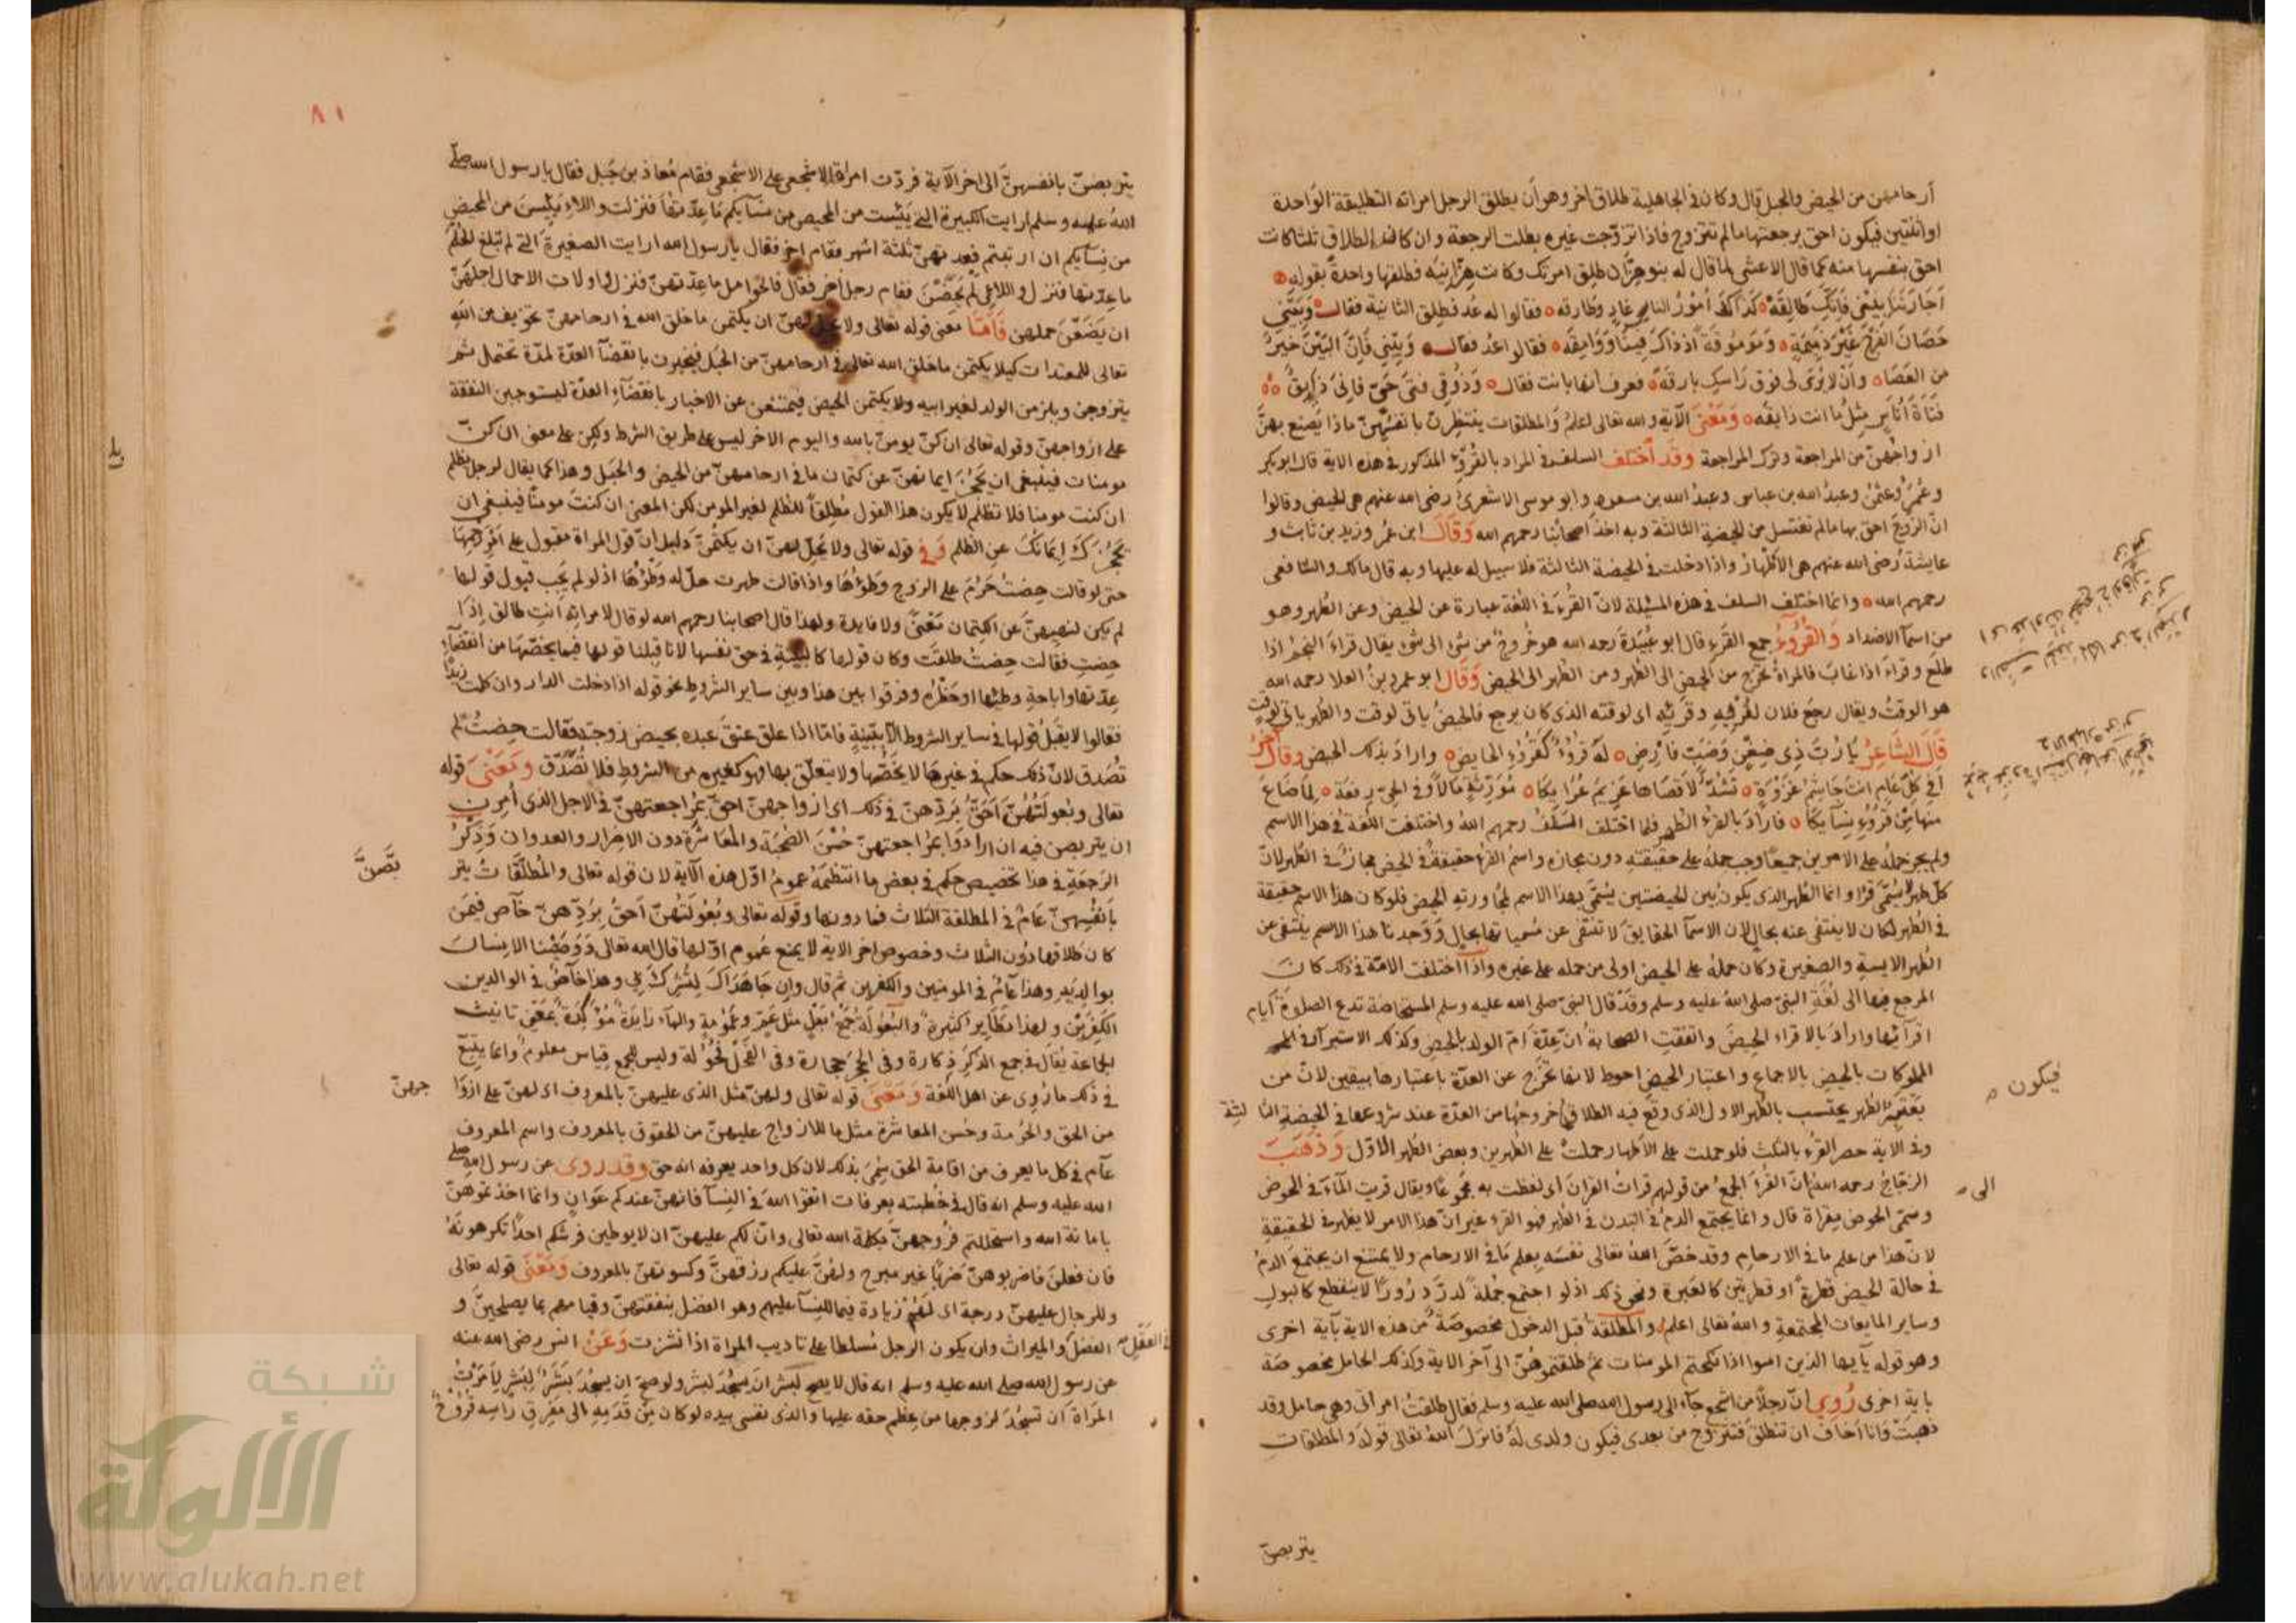 أرحامهن من الحيض والحبل قال وكان في الجاهلية طلاق اخر وهو أن يطلق الرجل امراته التطليقة الواحدة
او اثنتين فيكون احق برجعتها ما لم تتزوج فاذا تزوجت غيره بطلت الرجعة وان كان الطلاق ثلثا كانت
احق بنفسها منه كما قال الاعشى لما قال له بنو هزان طلق امرتك وكانت هزانية فطلقها واحدة بقوله
أجارتنا بيني فإنك طالقة كذاك أمور الناس غاد وطارقه فقالوا له عد فطلق الثانية فقال وبيني
حصان الفرج غير ذميمة وموموقة اذ ذاك فينا ووامقه فقالوا عد فقال وبيني فان البين خير
من العصا وأن لا يرى لي فوق راسك بارقه فعرف انها بانت فقال وذوقي فتى حي فاني ذايق
فتاة أناس مثل ما انت ذايقه ومعنى الآية والله تعالى اعلم والمطلقات ينتظرن بانفسهن ماذا يصنع بهن
ازواجهن من المراجعة وترك المراجعة وقد أختلف السلف في المراد بالقروء المذكور في هذه الاية قال ابو بكر
وعمر وعثمن وعبد الله بن عباس وعبد الله بن مسعود وابو موسى الاشعري رضى الله عنهم هي الحيض وقالوا
ان الزوج احق بها ما لم تغتسل من الحيضة الثالثة وبه اخذ اصحابنا رحمهم الله وقال ابن عمر وزيد بن ثابت و
عايشة رضى الله عنهم هي الأطهار واذا دخلت في الحيضة الثالثة فلا سبيل له عليها وبه قال مالك والشافعى
رحمهم الله وانما اختلف السلف في هذه المسئلة لان القرء في اللغة عبارة عن الحيض وعن الطهر وهو
من اسمآ الاضداد والقروء جمع القرء قال ابو عبيدة رحمه الله هو خروج من شئ الى شئ يقال قراء النجم اذا
طلع وقراء اذا غاب فالمراة تخرج من الحيض الى الطهر ومن الطهر الى الحيض وقال ابو عمرو بن العلا رحمه الله
هو الوقت ويقال رجع فلان لقرئه وقريئه اى لوقته الذى كان يرجع فالحيض ياتى لوقت والطهر ياتى لوقت
قال الشاعر يا رب ذى ضغن وضب فارض له قروء كقروء الحايض واراد بذلك الحيض وقال آخر
افي كل عام انت جاشم غزوة تشد لأقصاها عزيم عزايكا مورثة مالا وفي الحي رفعة لما ضاع
منها من قروء نسايكا فاراد بالقرء الطهر فلما اختلف السلف رحمهم الله واختلفت اللغة في هذا الاسم
ولم يجز حمله على الامرين جميعا وجب حمله على حقيقته دون مجازه واسم القرء حقيقة في الحيض مجاز في الطهر لان
كل طهر لا يسمى قرا وانما الطهر الذى يكون بين الحيضتين يسمى بهذا الاسم لمجاورته الحيض فلو كان هذا الاسم حقيقة
في الطهر لكان لا ينتفى عنه بحال لان الاسمآ الحقايق لا تنتفى عن مسمياتها بحال ووجدنا هذا الاسم ينتفى عن
الطهر الايسة والصغيرة وكان حمله على الحيض اولى من حمله على غيره واذا اختلفت الامة في ذلك كان
المرجع فيها الى لغة النبي صلى الله عليه وسلم وقد قال النبي صلى الله عليه وسلم المستحاضة تدع الصلوة ايام
اقرآئها واراد بالاقراء الحيض واتفقت الصحابة ان عدة ام الولد بالحيض وكذلك الاستبرآ في
المملوكات بالحيض بالاجماع واعتبار الحيض احوط لانها تخرج عن العدة باعتبارها بيقين لان من
فيكون
يعتبر الطهر يحتسب بالطهر الاول الذى وقع فيه الطلاق خروجها من العدة عند شروعها في الحيضة الثالثة
وفي الاية حصر القرء بالثلث فلو حملت على الأطهار حملت على الطهرين وبعض الطهر الاول وذهب
الزجاج رحمه الله ان القرء الجمع من قولهم قرات القران اى لفظت به مجموعا ويقال قريت المآء في الحوض
الى
وسمى الحوض مقراة قال وانما يجتمع الدم في البدن في الطهر فهو القرء غير ان هذا الامر لا يظهر في الحقيقة
لان هذا من علم ما في الارحام وقد خص الله تعالى نفسه بعلم ما في الارحام ولا يمتنع ان يجتمع الدم
في حالة الحيض قطرة او قطرتين كالعبرة ونحو ذلك اذ لو اجتمع جملة لدر درورا لا ينقطع كالبول
وساير المايعات المجتمعة والله تعالى اعلم والمطلقة قبل الدخول مخصوصة من هذه الاية بآية اخرى
وهو قوله يآيها الذين امنوا اذا نكحتم المومنات ثم طلقتموهن الى آخر الاية وكذلك الحامل مخصوصة
باية اخرى روي ان رجلا من اشجع جآء الى رسول الله صلى الله عليه وسلم فقال طلقت امراتى وهي حامل وقد
ذهبت وانا اخاف ان تنطلق فتتزوج من بعدى فيكون ولدى له فانزل الله تعالى قوله والمطلقات
يتربصن
٨١
يتربصن بانفسهن الى اخر الآية فردت امراة الاشجعى على الاشجعى فقام معاذ بن جبل فقال يا رسول الله صلى
الله عليه وسلم ارايت الكبيرة التى يئست من المحيض من نسآيكم ما عدتها فنزلت واللاء يئسن من المحيض
من نسآيكم ان ارتبتم فعدتهن ثلثة اشهر فقام اخر فقال يا رسول الله ارايت الصغيرة التى لم تبلغ الحلم
ما عدتها فنزل واللائى لم يحضن فقام رجل اخر فقال فالحوامل ما عدتهن فنزل واولات الاحمال اجلهن
ان يضعن حملهن فأما معنى قوله تعالى ولا يحل لهن ان يكتمن ما خلق الله في ارحامهن تخويف من الله
تعالى للمعتدات كيلا يكتمن ما خلق الله تعالى في ارحامهن من الحبل فيخبرن بانقضآ العدة لمدة تحتمل ثم
يتزوجن ويلزمن الولد لغير ابيه ولا يكتمن الحيض فيمتنعن عن الاخبار بانقضآء العدة ليستوجبن النفقة
على ازواجهن وقوله تعالى ان كن يومن بالله واليوم الاخر ليس على طريق الشرط ولكن على معنى ان كن
مومنات فينبغى ان يحجز ايمانهن عن كتمان ما في ارحامهن من الحيض والحبل وهذا كما يقال لرجل يظلم
ان كنت مومنا فلا تظلم لا يكون هذا القول مطلقا للظلم لغير المومن لكن المعنى ان كنت مومنا فينبغى ان
يحجزك إيمانك عن الظلم وفي قوله تعالى ولا يحل لهن ان يكتمن دليل ان قول المراة مقبول على امر رحمها
حتى لو قالت حضت حرم على الزوج وطؤها واذا قالت طهرت حل له وطؤها اذ لو لم يجب قبول قولها
لم يكن لنهيهن عن الكتمان معنى ولا فايدة ولهذا قال اصحابنا رحمهم الله لو قال لامراته انت طالق إذا
حضت فقالت حضت طلقت وكان قولها كالبينة في حق نفسها لانا قبلنا قولها فيما يخصها من انقضآء
عدتها واباحة وطئها او حظره وفرقوا بين هذا وبين ساير الشروط نحو قوله اذا دخلت الدار وان كلمت زيدا
فقالوا لا يقبل قولها في ساير الشروط الا ببينة فاما اذا علق عتق عبده بحيض زوجته فقالت حضت لم
تصدق لان ذلك حكم في غيرها لا يخصها ولا يتعلق بها فهو كغيره من الشروط فلا تصدق ومعنى قوله
تعالى وبعولتهن احق بردهن في ذلك اى ازواجهن احق بمراجعتهن في الاجل الذى امرن
ان يتربصن فيه ان ارادوا بمراجعتهن حسن الصحبة والمعاشرة دون الاضرار والعدوان وذكر
الرجعة في هذا تخصيص حكم في بعض ما انتظمه عموم اول هذه الآية لان قوله تعالى والمطلقات يتر
بصن
بأنفسهن عام في المطلقة الثلاث فما دونها وقوله تعالى وبعولتهن احق بردهن خآص فيمن
كان طلاقها دون الثلاث وخصوص اخر الاية لا يمنع عموم اولها قال الله تعالى ووصينا الانسان
بوالديه وهذا عام في المومنين والكفرين ثم قال وإن جاهداك لتشرك بي وهذا خآص في الوالدين
الكفرين ولهذا نظاير كثيرة والبعولة جمع بعل مثل عم وعمومة والهآء زايدة موكدة بمعنى تانيث
الجماعة يقال في جمع الذكر ذكارة وفي الحجر حجارة وفي الفحل فحولة وليس للجمع قياس معلوم وانما يتبع
في ذلك ما روى عن اهل اللغة ومعنى قوله تعالى ولهن مثل الذى عليهن بالمعروف اى لهن على ازوا
جهن
من الحق والحرمة وحسن المعاشرة مثل ما للازواج عليهن من الحقوق بالمعروف واسم المعروف
عآم في كل ما يعرف من اقامة الحق سمى بذلك لان كل واحد يعرفه انه حق وقد روى عن رسول الله صلى
الله عليه وسلم انه قال في خطبته بعرفات اتقوا الله في النسآ فانهن عندكم عوان وانما اخذتموهن
بامانة الله واستحللتم فروجهن بكلمة الله تعالى وان لكم عليهن ان لا يوطين فرشكم احدا تكرهونه
فان فعلن فاضربوهن ضربا غير مبرح ولهن عليكم رزقهن وكسوتهن بالمعروف ومعنى قوله تعالى
وللرجال عليهن درجة اى لهم زيادة فيما للنسآ عليهم وهو الفضل بنفقتهن وقيامهم بما يصلحهن و
في العقل الفضل والميراث وان يكون الرجل مسلطا على تاديب المراة اذا نشزت وعن انس رضى الله عنه
عن رسول الله صلى الله عليه وسلم انه قال لا يصح لبشر ان يسجد لبشر ولو صح ان يسجد بشر لبشر لأمرت
المراة ان تسجد لزوجها من عظم حقه عليها والذى نفسى بيده لو كان من قدمه الى مفرق راسه قروح
شبكة
الألوكة
www.alukah.net